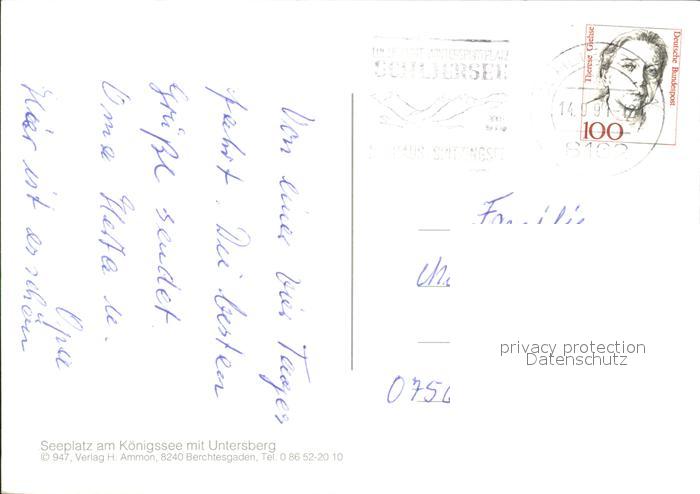 Von einer vier Tages
fahrt. Die besten
Grüße sendet
Oma Herta u.
Opa
Hier ist es schön
SCHLIERSEE
14.9.9
8162
Therese Giehse
Deutsche Bundespost
100
Familie
075
privacy protection
Datenschutz
Seeplatz am Königssee mit Untersberg
© 947, Verlag H. Ammon, 8240 Berchtesgaden, Tel. 0 86 52-20 10